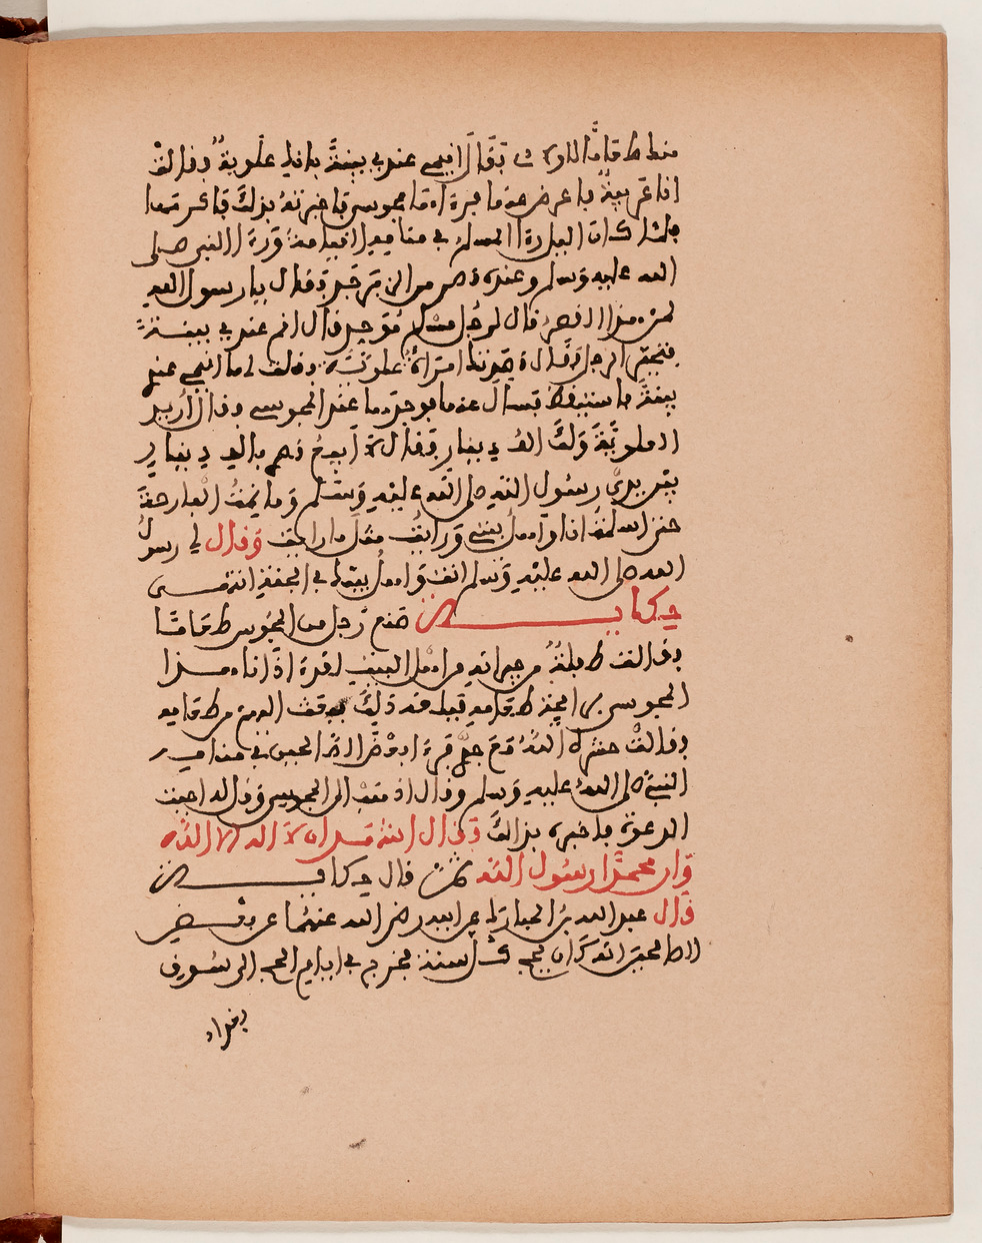 فقال اقيمي عندي بينة بانك علوية وقالت
انا غريبة فاعرض عنها فمرت امّا مجوسي فاخبرته بذلك فاكرمها
فلما كان الليل رءا المسلم في منامه القيامة ورءا النبي صلى
الله عليه وسلم وعنده قصر من الزبرجد وقال يا رسول الله
لمن هذا القصر قال لرجل مسلم موحد قال اقم عندي بينة
فتحير الرجل وقال قصدتك امرأة علوية وقلت لها اقيمي عندي
بينة فاستيقظ فسأل عنها فوجدها عند المجوسي وقال اريد
العلوية ولك الف دينار فقال لا ابيع قصر بالف دينار
بين يدي رسول الله صلى الله عليه وسلم وما نمت البارحة
حتى اسلمت انا واهل بيتي ورايت مثل ما رايت وقال لي رسول
الله صلى الله عليه وسلم انت واهل بيتك في الجنة انتهى
حكاية صنع رجل من المجوس طعاما
وقالت طفلة من جيرانه من اهل البيت لقد اذانا هذا
المجوسي طعامه ذلك بعث اليهم من طعامه
وقالت حشره الله مع جدي فرءا بعض الصالحين في منامه
النبي صلى الله عليه وسلم وقال اذهب الى المجوسي وقل له اجيبت
الدعوة فاخبره بذالك وقال اشهد ان لا اله الا الله
وان محمدا رسول الله تمت قال حكاية
قال عبد الله بن المبارك عن ابيه رضي الله عنهما عن بعض
الصالحين انه كان يحج كل سنة فخرج في ايام الحج الى سوق
بغداد